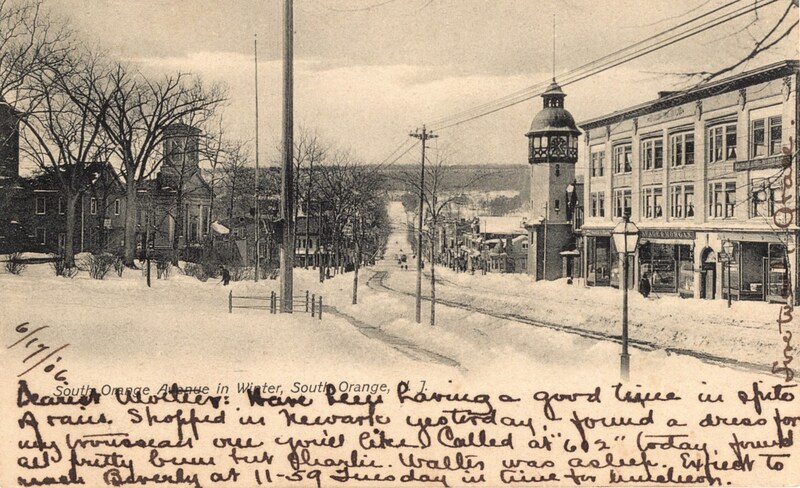 6/17/06
South Orange Avenue in Winter, South Orange, N. J.
Dearest Mother: Have been having a good time in spite
of rain. Shopped in Newark yesterday, found a dress for
my trousseau one you'll like. Called at "612" today, found
all pretty bum but Charlie. Walter was asleep. Expect to
reach Beverly at 11-59 Tuesday in time for luncheon.
Love to